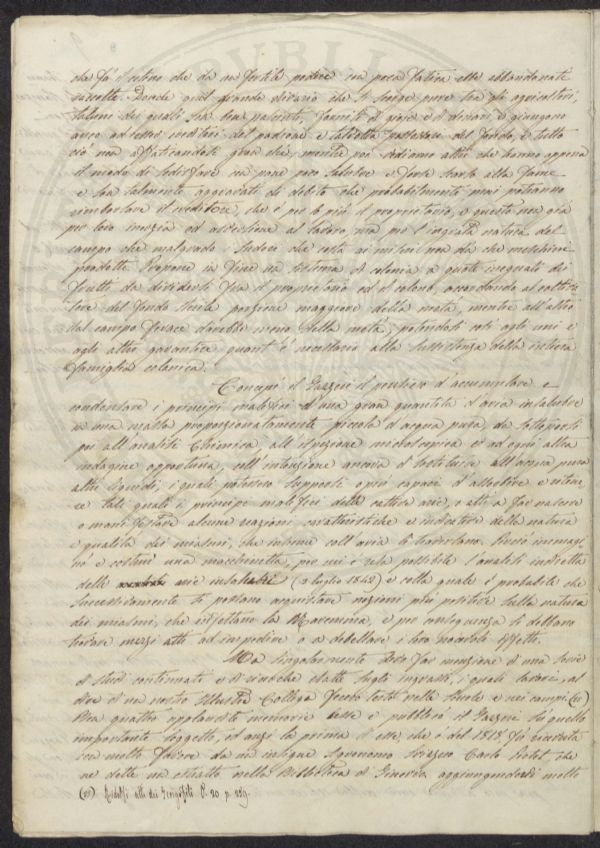 che fa il colono che da un fertile podere con poca fatica ebbe abbondanti
raccolte. Donde quel grande divario che si scorge pure tra gli agricoltori,
taluni dei quali son ben nascenti, forniti di gioje e di denari e giungono
anco ad esser creditori del padrone e talvolta possessori del fondo, e tutto
ciò non affaticandosi gran chè, mentre poi vediamo altri che hanno appena
il modo di sodisfare con pane poco salubre e forse scarso alla fame
e son talmente aggravati di debito che probabilmente mai potranno
rimborsare il creditore, che è per lo più il proprietario, e questo non già
per loro inerzia ed avversione al lavoro, ma per l'ingrata natura del
campo che malgrado i sudori che costa ai miseri non dà che meschini
prodotti. Propone in fine un sistema di colonia a quote ineguali dei
frutti da dividersi fra il proprietario ed il colono, accordando al coltiva
tore del fondo sterile porzione maggiore della metà, mentre all'altro
dal campo ferace darebbe meno della metà, potendosi così agli uni e
agli altri garantire quant'è necessario alla sussistenza della intiera
famiglia colonica.
Concepì il Gazzeri il pensiero d'accumulare e
condensare i principi malefici di una gran quantità d'aria insalubre
in una massa proporzionatamente piccola d'acqua pura, da sottoporsi
poi all'analisi chimica, all'ispezione microscopica ed ad ogni altra
indagine opportuna, coll'intenzione ancora di sostituire all'acqua pura
altri liquidi, i quali potessero supporsi o più capaci d'assorbire e ritene
re tali quali i principi malefici delle cattive arie, o atti a far nascere
o manifestare alcune reazioni caratteristiche e indicative della natura
e qualità dei miasmi, che insieme coll'aria li traversano. Perciò immagi
nò e costruì una macchinetta, per cui è resa possibile l'analisi indiretta
delle arie insalubri (2 luglio 1842) e colla quale è probabile che
successivamente si possano acquistare nozioni più positive sulla natura
dei miasmi, che infestano la Maremma, e per conseguenza si debbano
trovare mezzi atti ad impedire o a debellare i loro nocevoli effetti.
Ma singolarmente devo far menzione di una serie
di studi continuati e di ricerche esatte sugli ingrassi, i quali lavori, al
dire di un nostro Illustre Collega fecero testo nelle scuole e nei campi. (22)
Ben quattro applaudite memorie lesse e pubblicò il Gazzeri su quello
importante soggetto, ed anzi la prima di esse, che è del 1818 fu ricevuta
con molto favore da un insigne agronomo svizzero Carlo Pictet, che
ne dette un estratto nella Biblioteca di Ginevra, aggiungendovi molte
(22) Ridolfi atti dei Georgofili T. 20 p. 239.